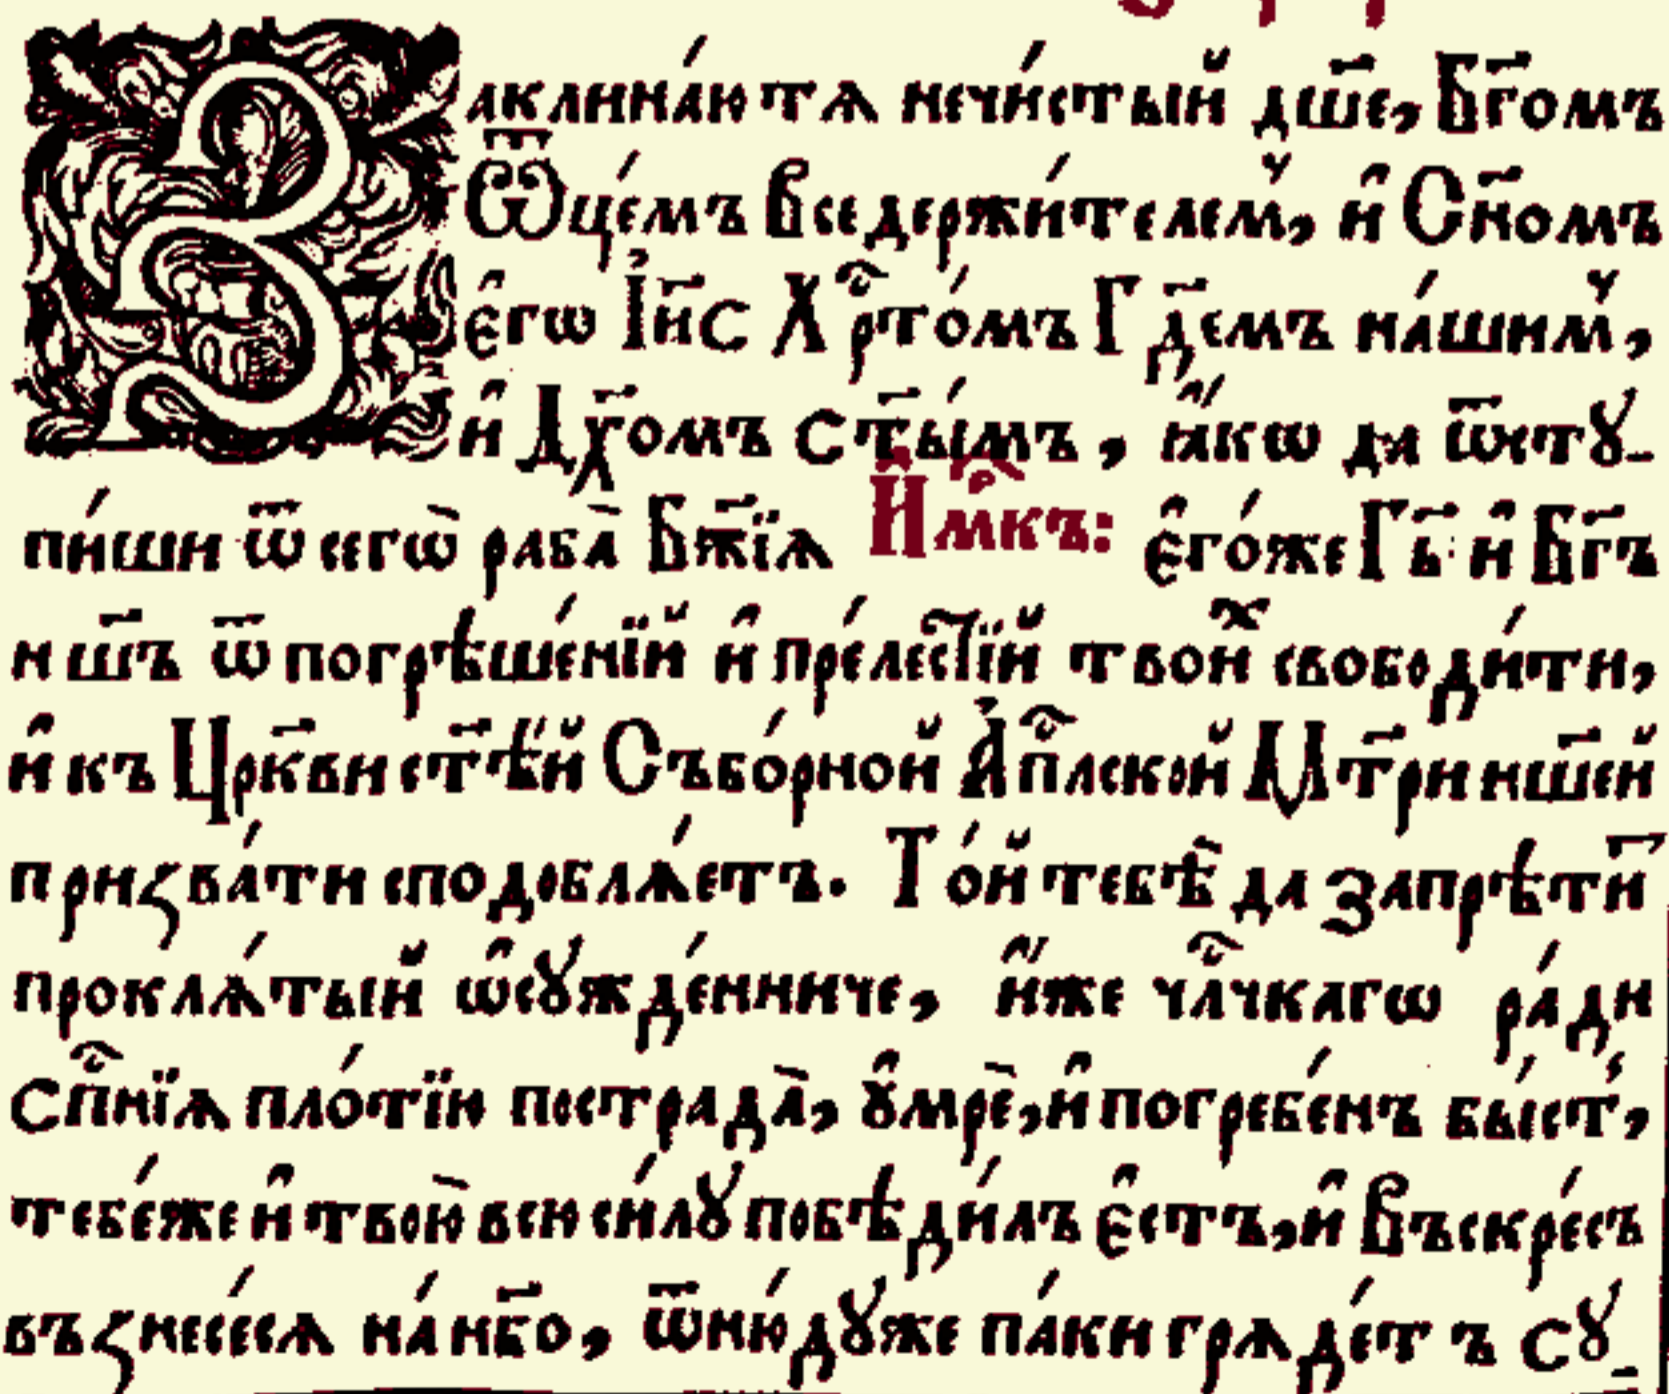 Заклина́ю тѧ нечи́стый дш҃е, Бг҃омъ
Ѿце́мъ Вседержи́телем̾, и҆ Сн҃омъ
є҆гѡ І҆и҃с Хрⷭ҇то́мъ Гд҃емъ на́шим̾,
и҆ Дх҃омъ ст҃ы́мъ, ꙗ҆́кѡ да ѿстꙋ-
пи́ши ѿ сегѡ̀ раба̀ Бж҃їѧ И҆м҃къ: є҆го́же Гь҃ и҆ Бг҃ъ
нш҃ъ ѿ погрѣше́нїй и҆ пре́лестїй твоиⷯ свободи́ти,
и҆ къ Црк҃ви ст҃ѣ́й Събо́рной А҆пⷭ҇лской Мт҃ри нш҃ей
призва́ти сподоблѧ́етъ. То́й тебѣ̀ да запрѣти҃
проклѧ́тый ѡ҆сꙋжде́нниче, и҆́же чл҃чкагѡ ра́ди
сп҃нїѧ пло́тїю пострада̀, ᲂу҆мрѐ, и҆ погребе́нъ бы́ст̾,
тебе́же и҆ твою̀ всю си́лꙋ побѣди́лъ є҆стъ, и҆ Въскре́съ
възнесе́сѧ на́ нб҃о, ѿню́дꙋже па́ки грѧде́тъ сꙋ